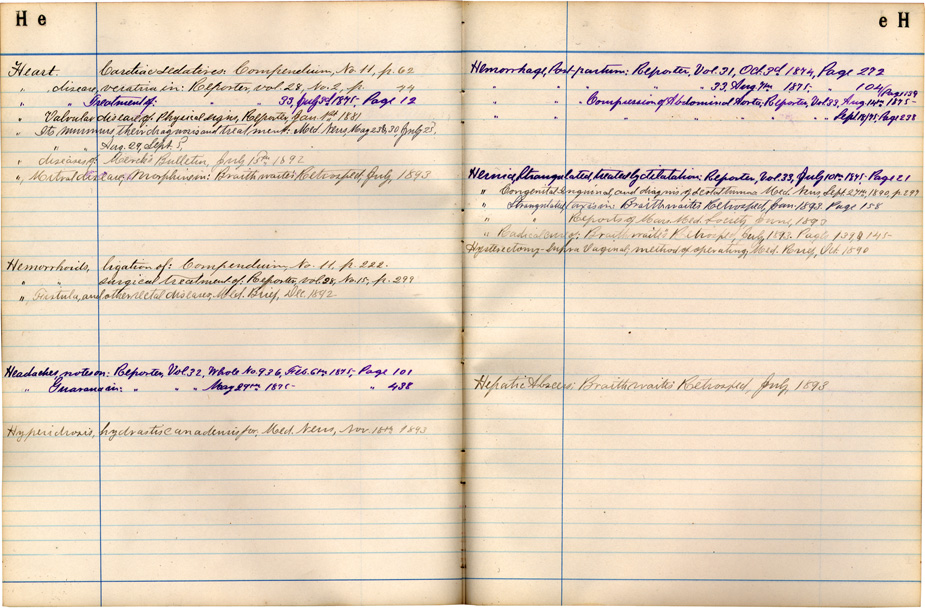 H e
Heart. Cardiac sedatives: Compendium, No. 11, p. 62
" disease, veratria in: Reporter, vol. 28, No. 2, p. 44
" " Treatment of: " " 33, July 3rd 1875, Page 12
" Valvular disease of Physical signs, Reporter, Jan. 1st 1881
" Its murmurs, their diagnosis and treatment: Med. News, May 23, 30, July 25,
" " Aug. 29, Sept. 5,
" diseases of: Merck's Bulletin, July 15th 1892
" Mitral disease, Morphine in: Braithwaite's Retrospect, July, 1893
Hemorrhoids, ligation of: Compendium, No. 11, p. 222.
" " surgical treatment of: Reporter, vol. 28, No. 15, p. 299
" Fistula, and other rectal diseases, Med. Brief, Dec. 1892
Headaches, notes on: Reporter, Vol. 32, Whole No. 936, Feb. 6th 1875, Page 101
" Guarana in: " " " May 29th 1875 " 438
Hyperidrosis, hydrastis canadensis for, Med. News, Nov. 18th 1893
e H
Hemorrhage, Post-partum: Reporter, Vol. 31, Oct. 3rd 1874, Page 272
" " " " 33, Aug. 7th 1875 " 104, Page 139
" " Compression of Abdominal Aorta, Reporter, Vol. 33, Aug. 14th 1875
" " " " " " Sept. 18/75, Page 238
Hernia, Strangulated, treated by : Reporter, Vol. 33, July 10th 1875, Page 21
" Congenital Inguinal, and diagnosis of scrotal tumors Med. News, Sept. 27th, 1890, p. 299
" Strangulated, taxis in: Braithwaite's Retrospect, Jan. 1893. Page 158
" " Reports of Mass. Med. Society, June, 1893
" Radical cure of: Braithwaite's Retrospect, July 1893. Page 139 & 145
Hysterectomy - Supra Vaginal, method of operating, Med. Brief, Oct. 1890
Hepatic Abscess: Braithwaite's Retrospect, July, 1893